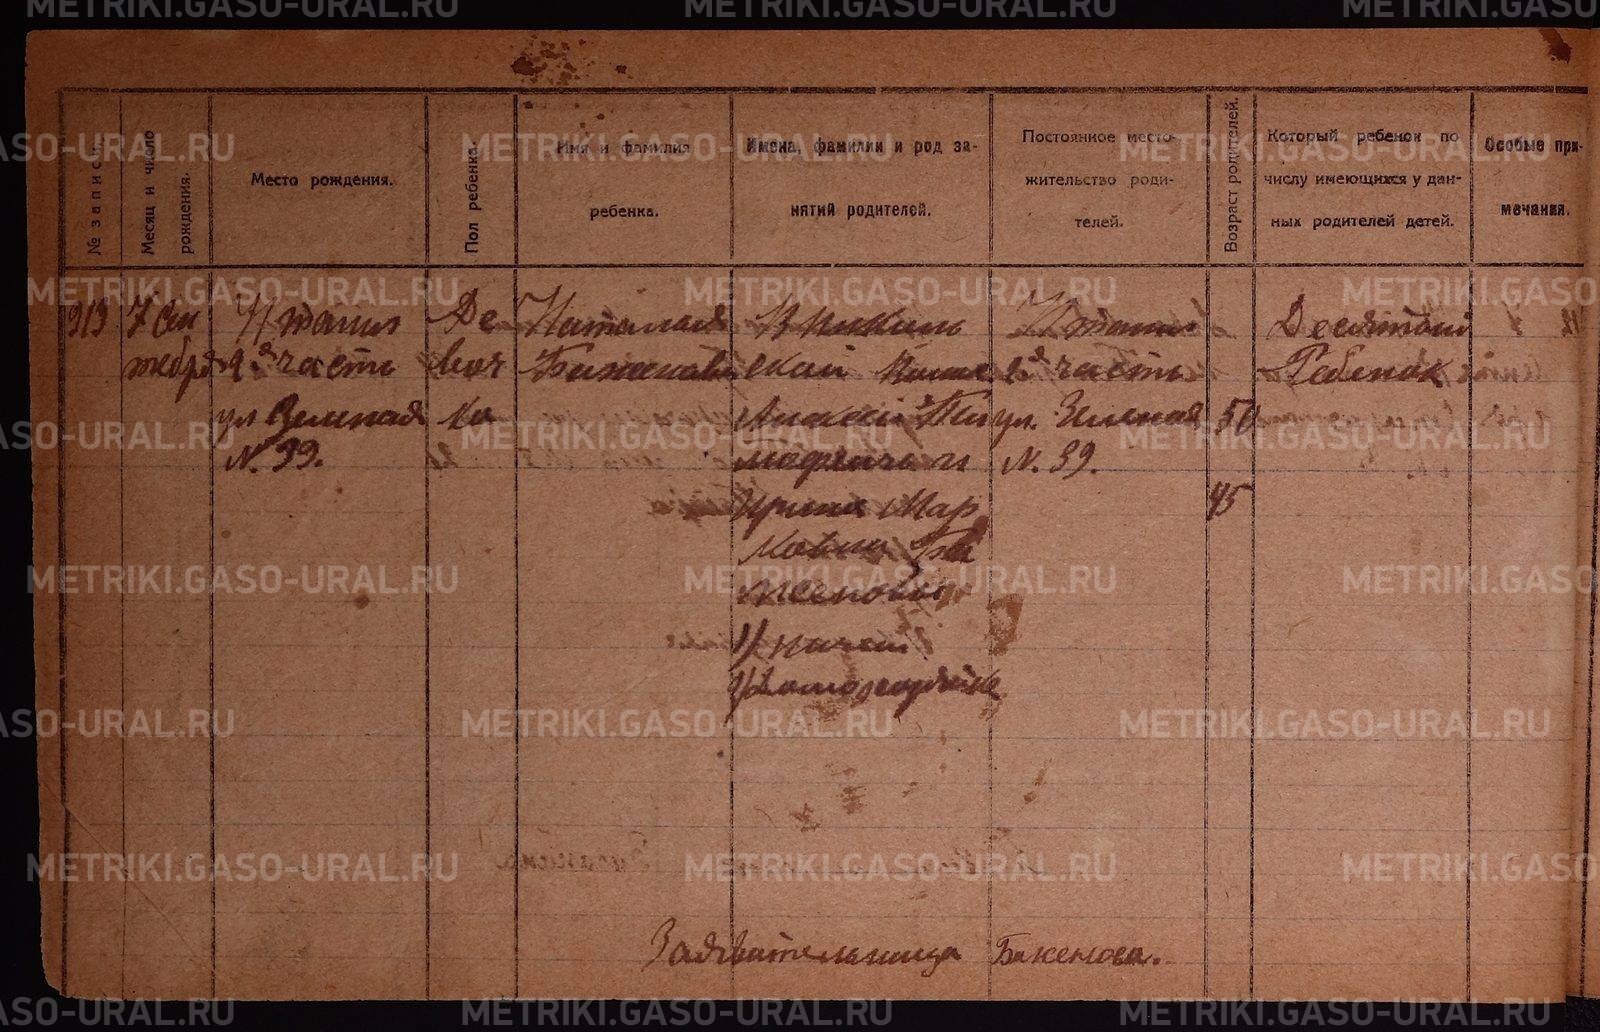 METRIKI.GASO-URAL.RU
№ записи.
Месяц и число рождения.
Место рождения.
Пол ребенка.
Имя и фамилия
ребенка.
Имена, фамилии и род за-
нятий родителей.
Постоянное место-
жительство роди-
телей.
Возраст родителей.
Который ребенок по
числу имеющихся у дан-
ных родителей детей.
Особые при-
мечания.
913
7 Сен
тября
Н Тагил
2я часть
ул Зеленая
N. 39.
Де
воч
ка
Наталья
Баженова
Алексей
Ирина Мар
ковна Ба
женовы
Н Тагил
2я часть
ул. Зеленая
N. 39.
50
45
Десятый
Ребенок
Заявительница Баженова.